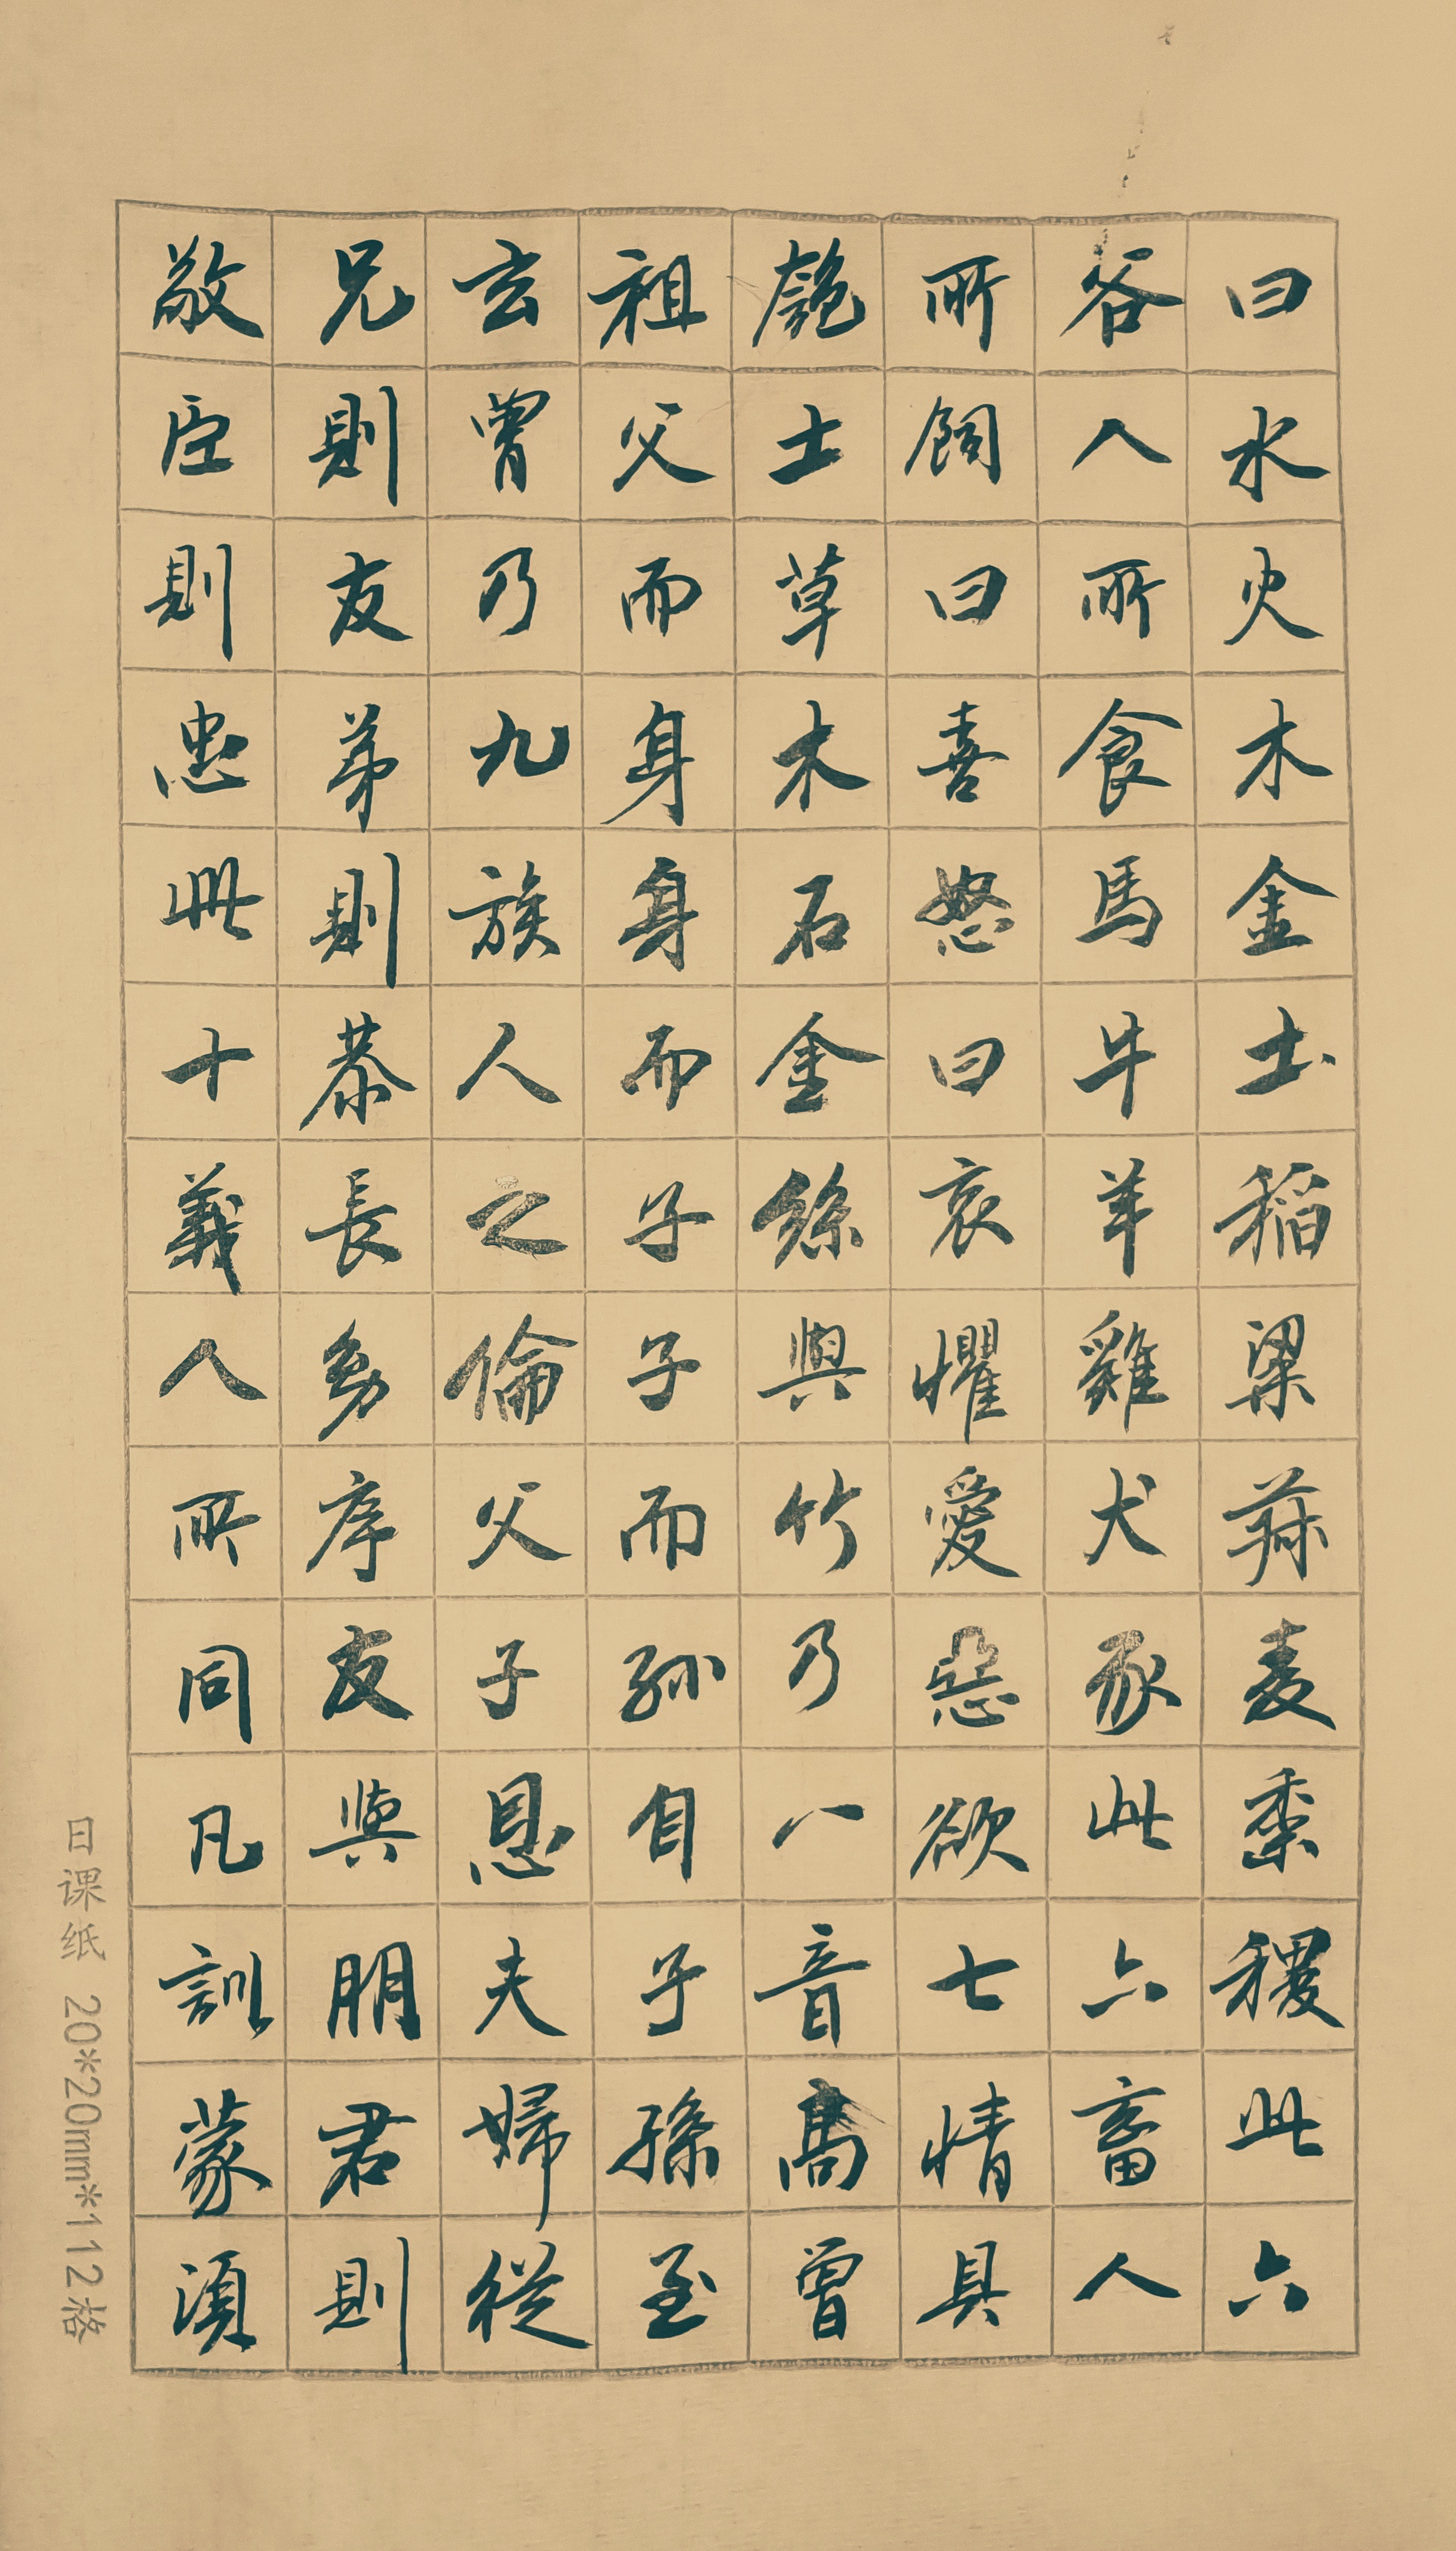 曰水火木金土稻粱菽麦黍稷此六
谷人所食馬牛羊雞犬豕此六畜人
所飼曰喜怒曰哀懼愛惡欲七情具
匏土草木石金絲與竹乃八音高曾
祖父而身身而子子而孫自子孫至
玄曾乃九族人之倫父子恩夫婦從
兄則友弟則恭長幼序友與朋君則
敬臣則忠此十義人所同凡訓蒙須
日课纸 20*20mm*112格